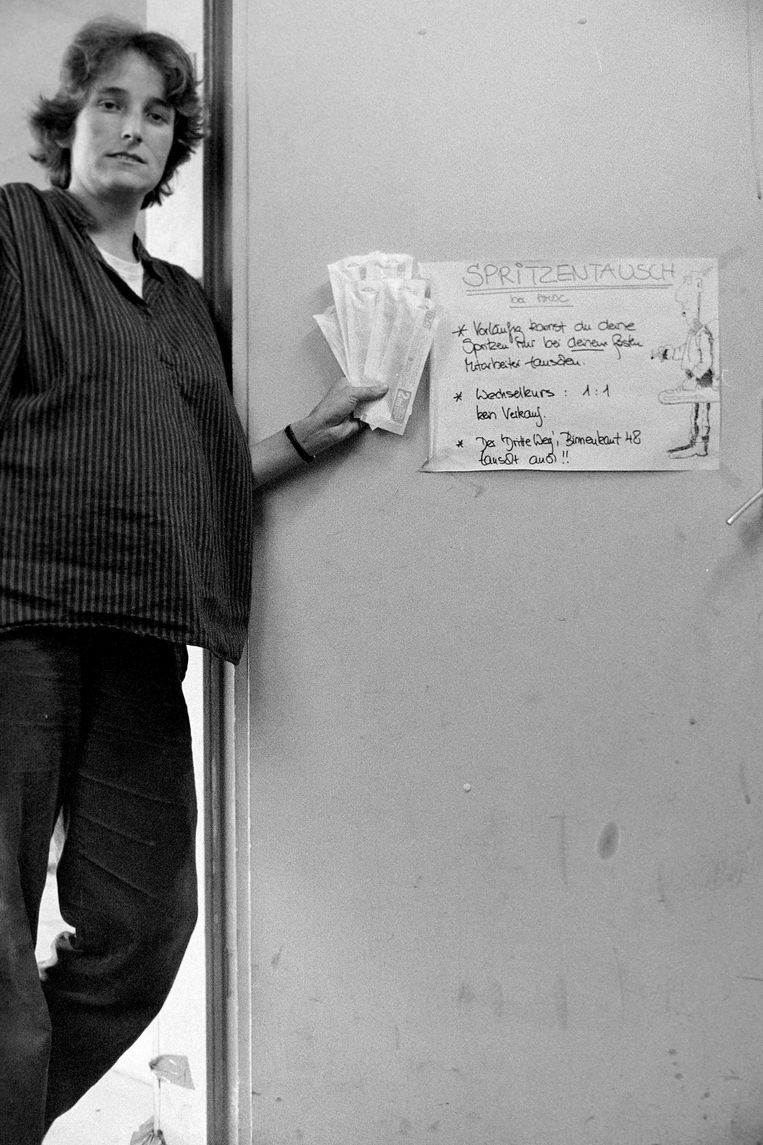 SPRITZENTAUSCH
bei
* Vorläufig kannst du deine
Spritzen nur bei deinem festen
Mitarbeiter tauschen.
* Wechselkurs : 1:1
kein Verkauf.
* Der 'Dritte Weg', Binnenkant 48
tauscht auch !!